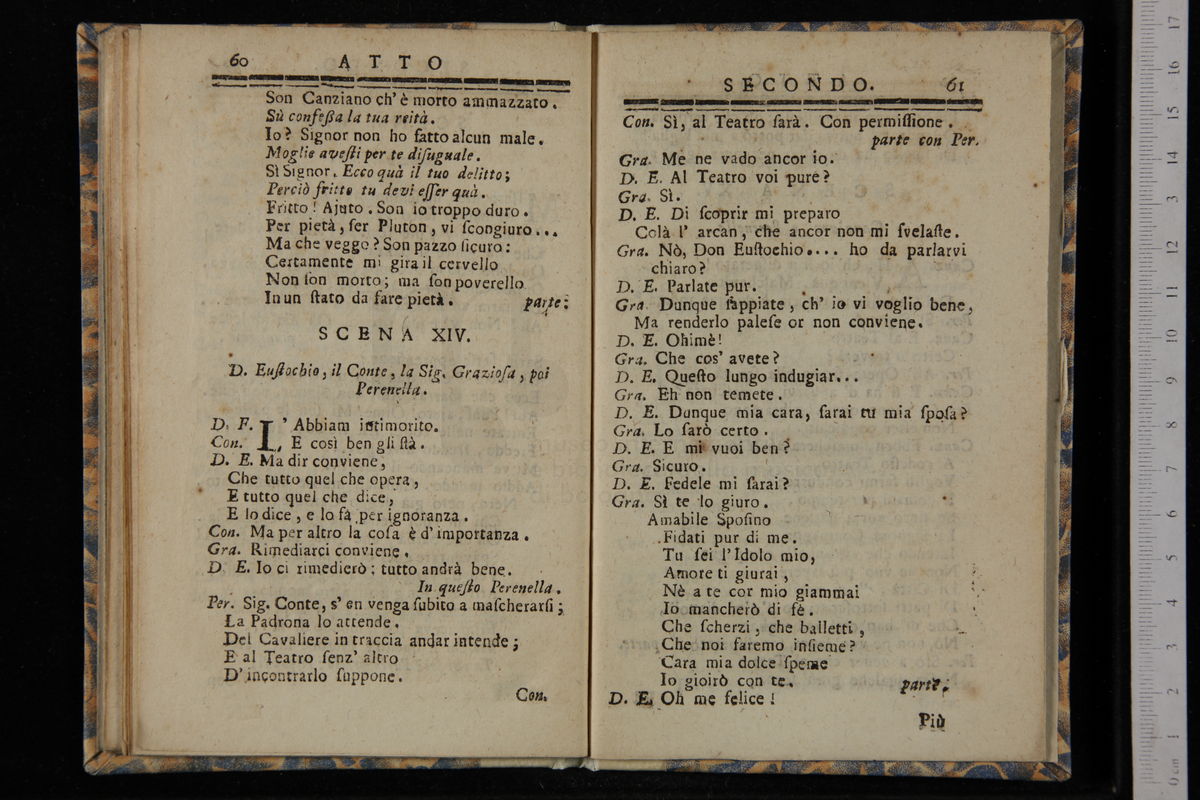 60 ATTO
Son Canziano ch' è morto ammazzato.
Sù confeſſa la tua reità.
Io? Signor non ho fatto alcun male.
Moglie aveſti per te diſuguale.
Sì Signor. Ecco quà il tuo delitto;
Perciò fritto tu devi eſſer quà.
Fritto! Ajuto. Son io troppo duro.
Per pietà, ſer Pluton, vi ſcongiuro...
Ma che veggo? Son pazzo ſicuro:
Certamente mi gira il cervello
Non ſon morto; ma ſon poverello
In un ſtato da fare pietà. parte;
SCENA XIV.
D. Euſtochio, il Conte, la Sig. Grazioſa, poi
Perenella.
D. F. L' Abbiam intimorito.
Con. E così ben gli ſtà.
D. E. Ma dir conviene,
Che tutto quel che opera,
E tutto quel che dice,
E lo dice, e lo fa per ignoranza.
Con. Ma per altro la coſa è d' importanza.
Gra. Rimediarci conviene.
D. E. Io ci rimedierò; tutto andrà bene.
In queſto Perenella.
Per. Sig. Conte, s' en venga ſubito a maſcherarſi;
La Padrona lo attende.
Del Cavaliere in traccia andar intende;
E al Teatro ſenz' altro
D' incontrarlo ſuppone.
Con.
SECONDO. 61
Con. Sì, al Teatro ſarà. Con permiſſione.
parte con Per.
Gra. Me ne vado ancor io.
D. E. Al Teatro voi pure?
Gra. Sì.
D. E. Di ſcoprir mi preparo
Colà l' arcan, che ancor non mi ſvelaſte.
Gra. Nò, Don Euſtochio.... ho da parlarvi
chiaro?
D. E. Parlate pur.
Gra. Dunque ſappiate, ch' io vi voglio bene,
Ma renderlo paleſe or non conviene.
D. E. Ohimè!
Gra. Che cos' avete?
D. E. Queſto lungo indugiar...
Gra. Eh non temete.
D. E. Dunque mia cara, ſarai tu mia ſpoſa?
Gra. Lo ſarò certo.
D. E. E mi vuoi ben?
Gra. Sicuro.
D. E. Fedele mi ſarai?
Gra. Sì te lo giuro.
Amabile Spoſino
Fidati pur di me.
Tu ſei l'Idolo mio,
Amore ti giurai,
Nè a te cor mio giammai
Io mancherò di fè.
Che ſcherzi, che balletti,
Che noi faremo inſieme?
Cara mia dolce ſpeme
Io gioirò con te. parte;
D. E. Oh me felice!
Più
0 cm 1 2 3 4 5 6 7 8 9 10 11 12 13 14 15 16 17